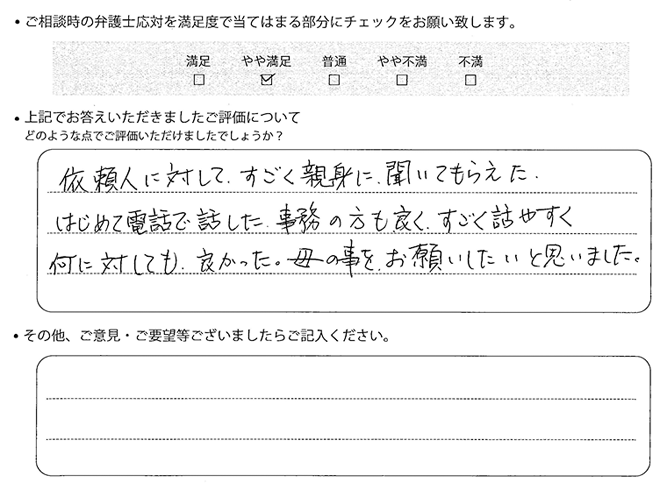 ・ご相談時の弁護士応対を満足度で当てはまる部分にチェックをお願い致します。
満足 やや満足 普通 やや不満 不満
□ ☑ □ □ □
・上記でお答えいただきましたご評価について
どのような点でご評価いただけましたでしょうか？
依頼人に対して、すごく親身に、聞いてもらえた.
はじめて電話で話した、事務の方も良く、すごく話やすく
何に対しても、良かった。母の事を、お願いしたいと思いました。
・その他、ご意見・ご要望等ございましたらご記入ください。